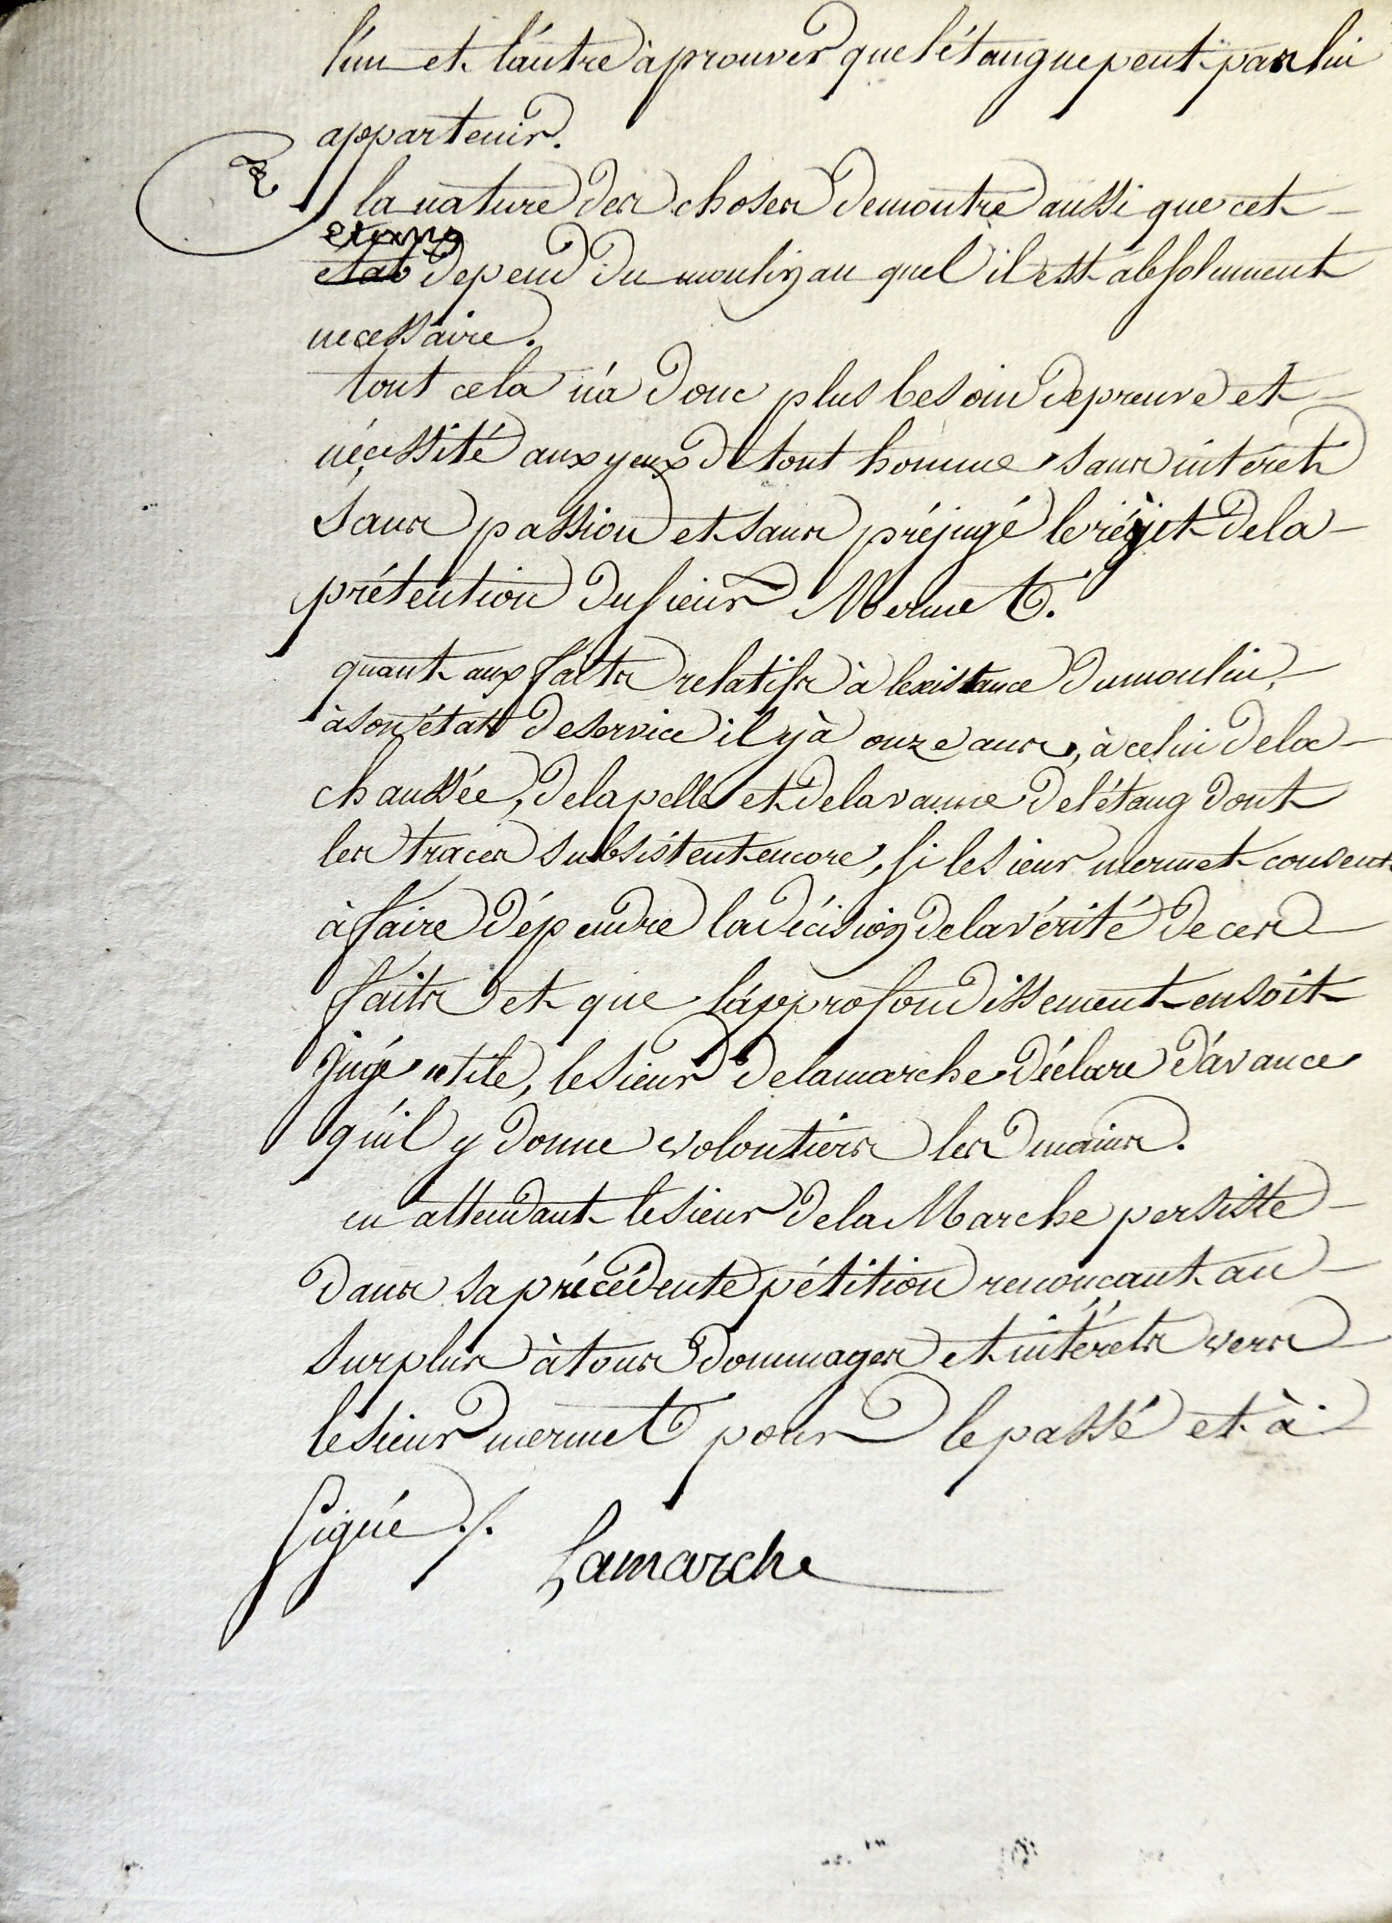 l'un et l'autre à prouver que l'étang ne peut pas lui
appartenir.
la nature des choses demontre aussi que cet
etang
etat depend du moulin au quel il est absolument
necessaire.
tout cela n'a donc plus besoin de preuve et
nécessité aux yeux de tout homme sans intérêt
sans passion et sans préjugé le réjet de la
prétention du sieur Mermet.
quant aux faits relatifs à lexistance du moulin,
à son état de service il y à onze ans, à celui de la
chaussée, de la pelle et de la vanne de l'étang dont
les traces subsistent encore, si le sieur mermet consent
à faire dépendre la décision de la vérité de ces
faits et que l'approfondissement en soit
jugé utile, le sieur delamarche déclare d'avance
qu'il y donne volontiers les mains.
en attendant le sieur de la Marche persiste
dans sa précédente pétition renonçant au
surplus à tous dommages et intérêts vers
le sieur mermet pour le passé et à
signé ./.
Lamarche